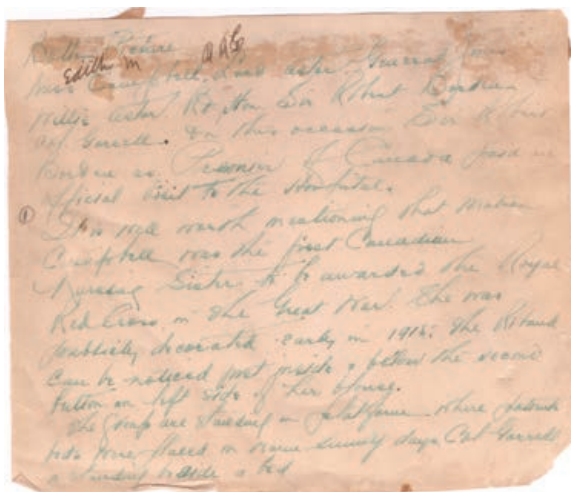 Edith M
Miss Campbell,
Astor. Rt. Hon Sir Robert Borden
Col. Gorrell. On this occasion Sir Robert
Borden as Premier of Canada paid an
official visit to the Hospital.
① It is well worth mentioning that Matron
Campbell was the first Canadian
Nursing Sister to be awarded the Royal
Red Cross in the Great War. She was
publicly decorated early in 1915. The Riband
can be noticed just inside & below the second
button on left side of her blouse.
The group are standing on platform where patients
beds were placed on sunny days. Col. Gorrell
is standing beside a bed